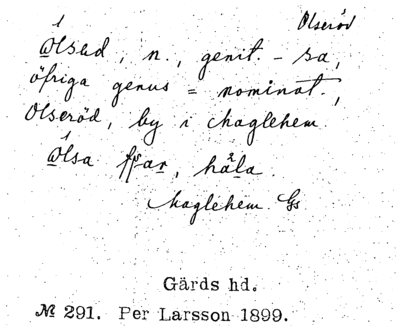 Olseröd
Ωlsed, n., genit. - sa,
öfriga genus = nominat.,
Olseröd, by i Maglehem
Ωlsa ffar, håla.
Maglehem Gs
Gärds hd.
№ 291. Per Larsson 1899.